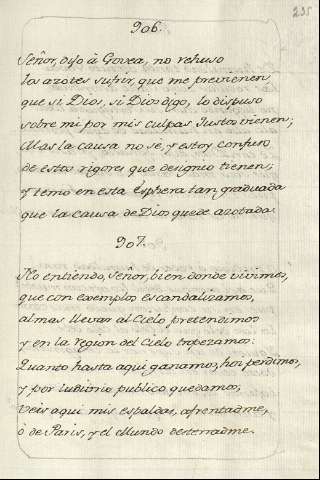 235
906.
Señor, dijo à Govea, no rehuso
los azotes sufrir, que me previenen,
que si Dios, si Dios digo, lo dispuso
sobre mi por mis culpas Justos vienen;
Mas la causa no se, y estoy confuso
de estos rigores que designio tienen;
y temo en esta Esphera tan graduada
que la causa de Dios quede azotada.
907.
No entiendo, Señor, bien donde vivimos,
que con exemplos escandalizamos,
almas llevar al Cielo pretendimos
y en la region del Cielo tropezamos:
Quanto hasta aqui ganamos, hoi perdimos,
y por ludibrio publico quedamos,
Veis aqui mis espaldas, afrentadme,
ò de Paris, y el Mundo desterradme.